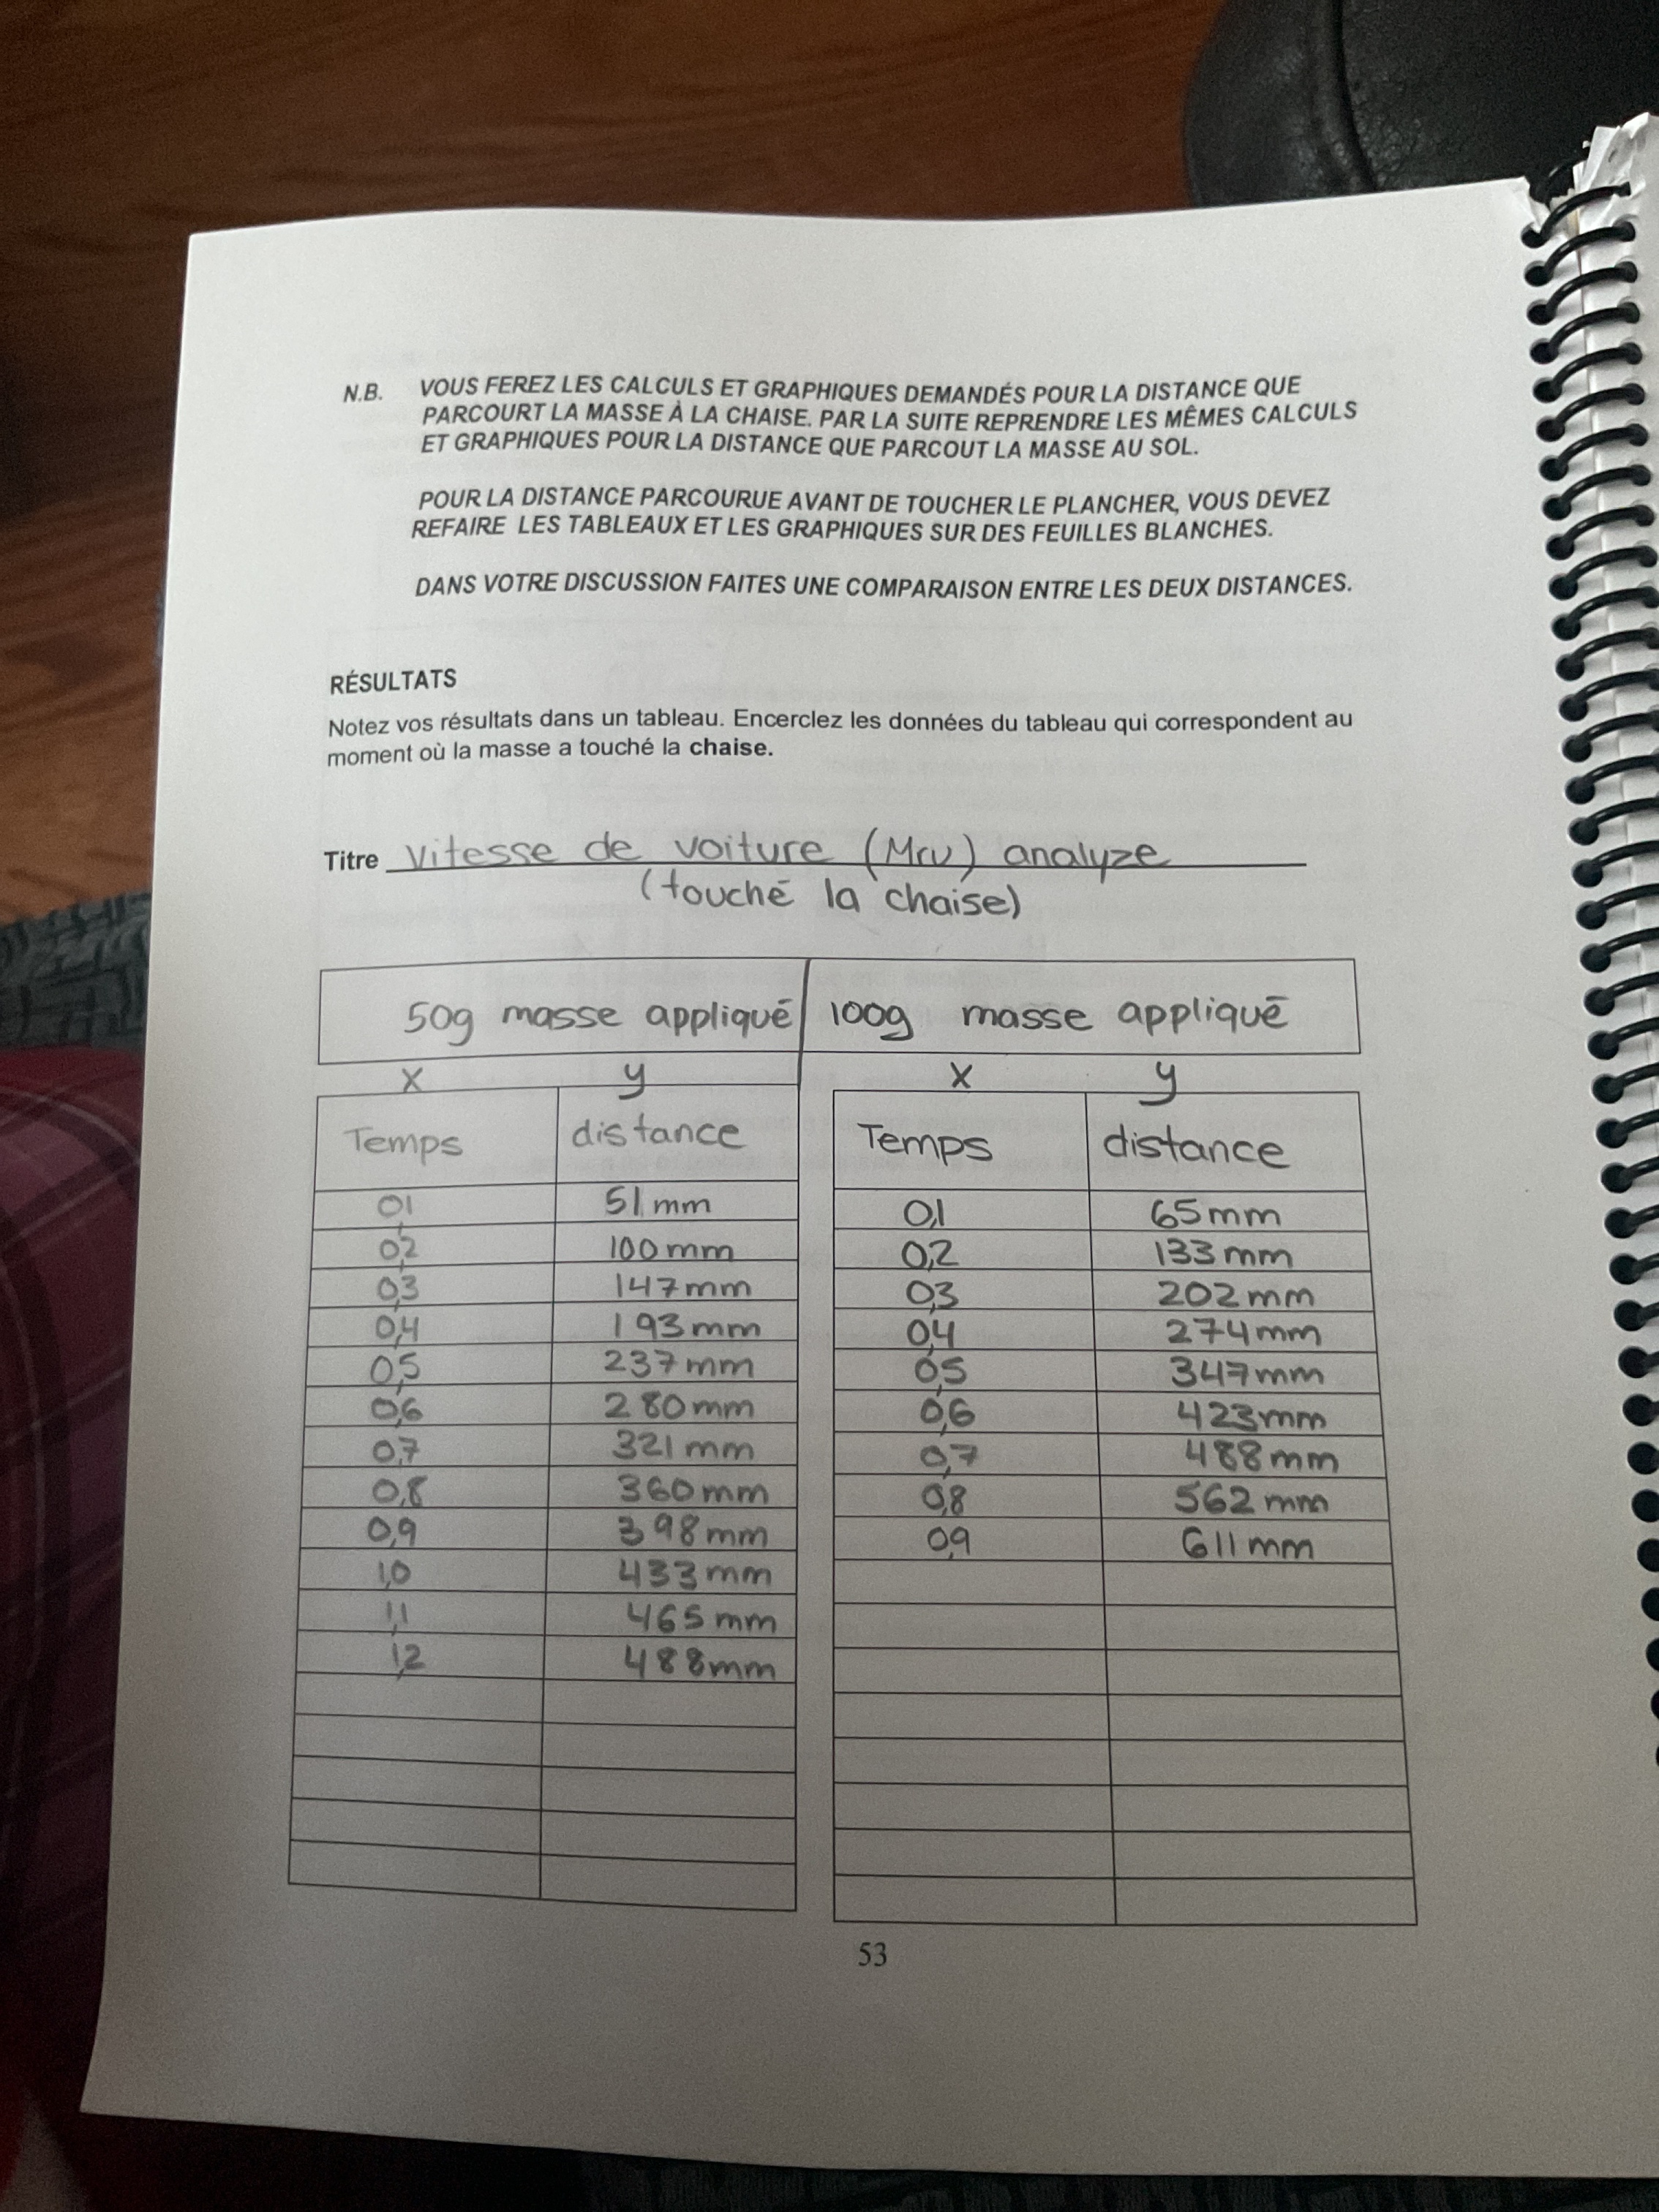 N.B. VOUS FEREZ LES CALCULS ET GRAPHIQUES DEMANDÉS POUR LA DISTANCE QUE
PARCOURT LA MASSE À LA CHAISE. PAR LA SUITE REPRENDRE LES MÊMES CALCULS
ET GRAPHIQUES POUR LA DISTANCE QUE PARCOUT LA MASSE AU SOL.
POUR LA DISTANCE PARCOURUE AVANT DE TOUCHER LE PLANCHER, VOUS DEVEZ
REFAIRE LES TABLEAUX ET LES GRAPHIQUES SUR DES FEUILLES BLANCHES.
DANS VOTRE DISCUSSION FAITES UNE COMPARAISON ENTRE LES DEUX DISTANCES.
RÉSULTATS
Notez vos résultats dans un tableau. Encerclez les données du tableau qui correspondent au
moment où la masse a touché la chaise.
Titre vitesse de voiture (Mru) analyze
(touché la chaise)
50g masse appliqué 100g masse appliqué
x y x y
Temps distance Temps distance
0,1 51 mm 0,1 65mm
0,2 100mm 0,2 133mm
0,3 147mm 0,3 202mm
0,4 193mm 0,4 274mm
0,5 237mm 0,5 347mm
0,6 280mm 0,6 423mm
0,7 321mm 0,7 488mm
0,8 360mm 0,8 562mm
0,9 398mm 0,9 611mm
1,0 433mm
1,1 465mm
1,2 488mm
53